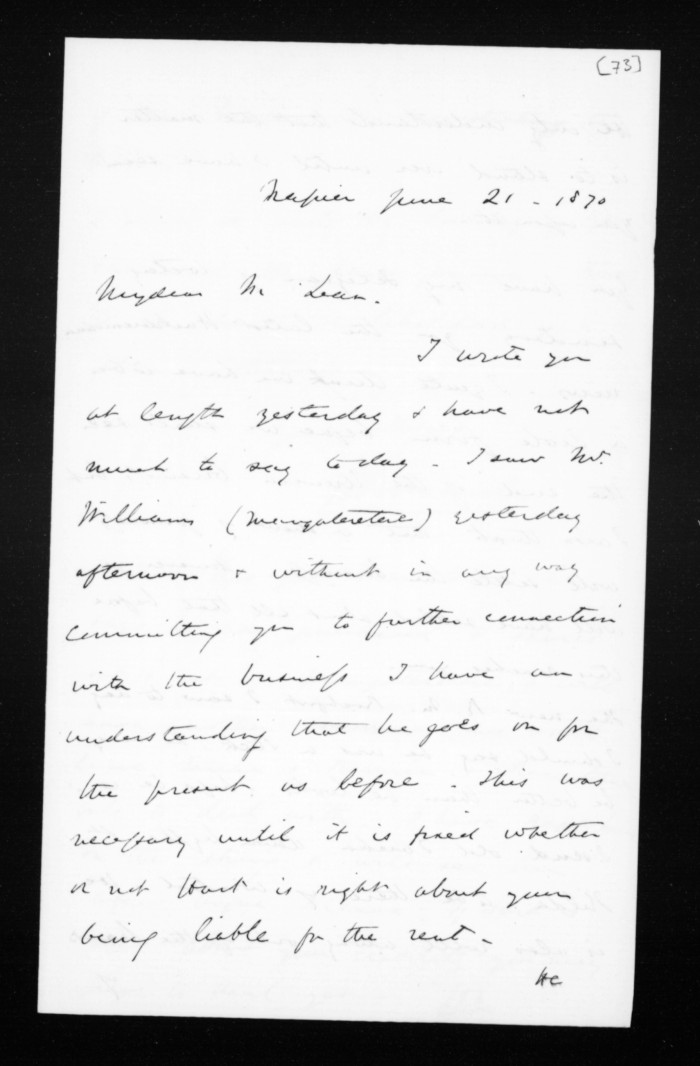 [73]
Napier June 21 - 1870
My dear McLean.
I wrote you
at length yesterday & have not
much to say today - I saw Mr.
Williams (Mangateretere) yesterday
afternoon & without in any way
committing you to further connection
with the business I have an
understanding that he goes on for
the present as before - This was
necessary until it is fixed whether
or not Hart is right about your
being liable for the rent -
He